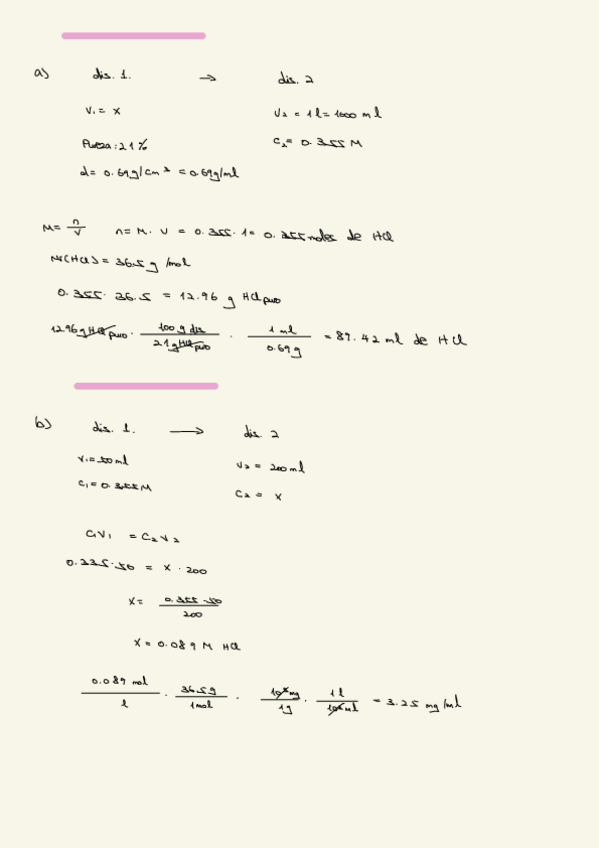 a) dis. 1. → dis. 2
V₁ = x V₂ = 1 l = 1000 ml
Pureza: 21% C₂ = 0.355 M
d = 0.69 g/cm³ = 0.69 g/ml
M = n/V n = M · V = 0.355 · 1 = 0.355 moles de HCl
M(HCl) = 36.5 g/mol
0.355 · 36.5 = 12.96 g HCl puro
12.96 g HCl puro · 100 g dis / 21 g HCl puro · 1 ml / 0.69 g = 89.42 ml de HCl
b) dis. 1. → dis. 2
V₁ = 50 ml V₂ = 200 ml
C₁ = 0.355 M C₂ = x
C₁V₁ = C₂V₂
0.335 · 50 = x · 200
x = 0.355 · 50 / 200
x = 0.089 M HCl
0.089 mol / l · 36.5 g / 1 mol · 10³ mg / 1 g · 1 l / 10³ ml = 3.25 mg/ml